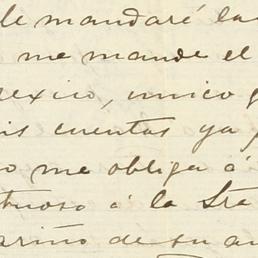 le mandaré la
me mande el
exico, unico
is cuentas ya
o me obliga á
tuoso á la Sra
ariño de su a